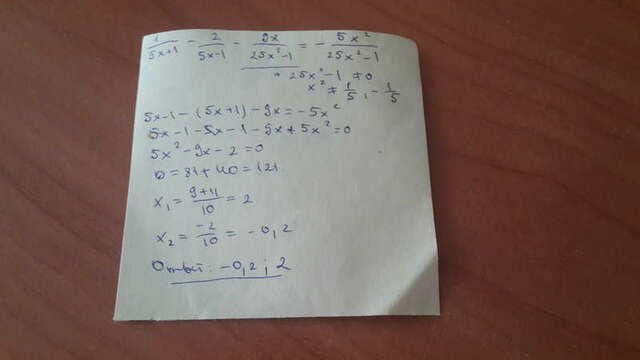 1/(5x+1) - 2/(5x-1) - 9x/(25x²-1) = - 5x²/(25x²-1)
* 25x²-1 ≠ 0
x² ≠ 1/5; -1/5
5x-1-(5x+1)-9x=-5x²
5x-1-5x-1-9x+5x²=0
5x²-9x-2=0
D=81+40=121
x₁ = (9+11)/10 = 2
x₂ = -2/10 = -0,2
Ответ: -0,2; 2